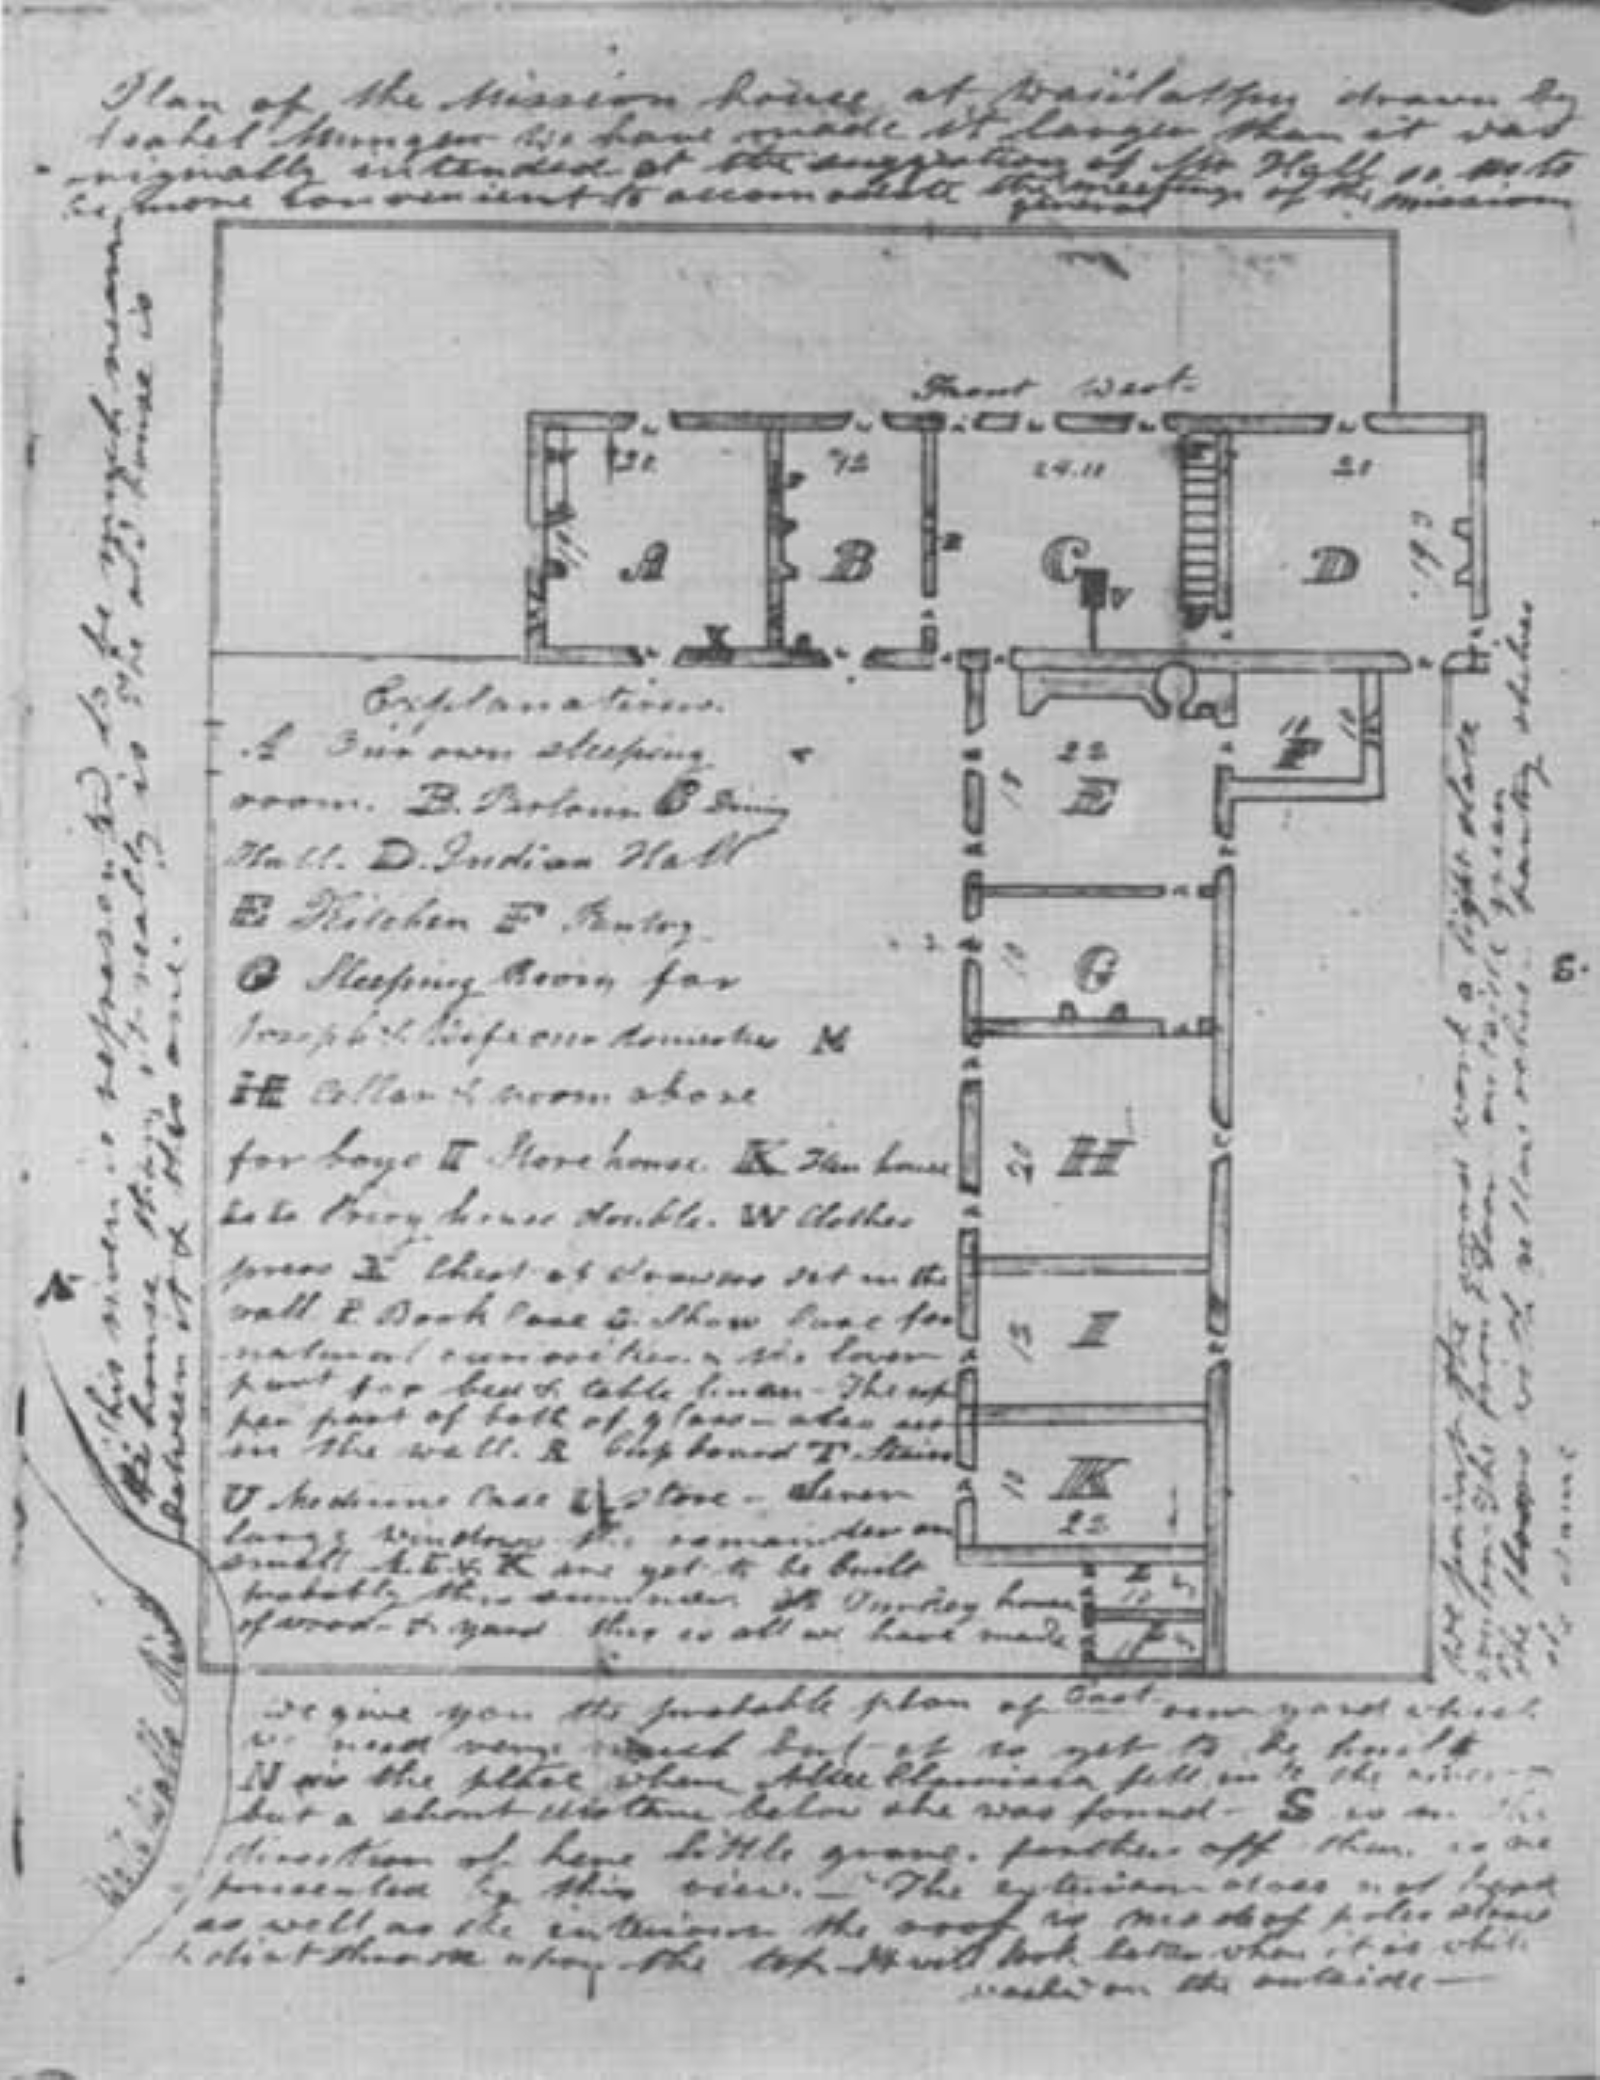 Plan of the Mission house at Waiilatpu drawn by
Munger We have made it larger than it was
originally intended at the suggestion of Mr Hall so as to
be more convenient to accomodate the general meetings of the mission
Front West
20
12
24.11
20
19 3
A
B
C
D
V
X
22
18
E
10
F
10
G
20
H
15
I
10
K
22
Explanation.
A Our own sleeping
room. B. Parlour C Dining
Hall. D. Indian Hall
E Kitchen F Pantry
G Sleeping Room for
Joseph & Wife our domestics
H Cellar & room above
for boys I Store house. K Hen house
Privy house double. W Clothes
press X Chest of drawers set in the
wall P Book Case Show Case for
natural curiosities & the lower
part for bed & table linen - The up
per part of both of glass - also set
in the wall. R Cupboard T Stairs
U Medicine Case stove - Seven
large windows the remainder are
small & K are yet to be built
probably this summer. Turkey house
of wood & yard this is all we have made
East
We give you the probable plan of our yard which
we need very much but it is yet to be built
N is the place where Alice Clarissa fell into the river
but a short distance below she was found - S is in the
direction of her little grave. farther off than is re
presented by this view. - The exterior does not look
as well as the interior the roof is made of poles straw
& dirt thrown upon the top It will look better when it is white
washed on the outside -
N
S.
This river is represented to be enough near
the house it really is The old house is
between it & this one.
Walla Walla River
We paint the wood work a light slate
the floors with yellow ochre. pantry shelves